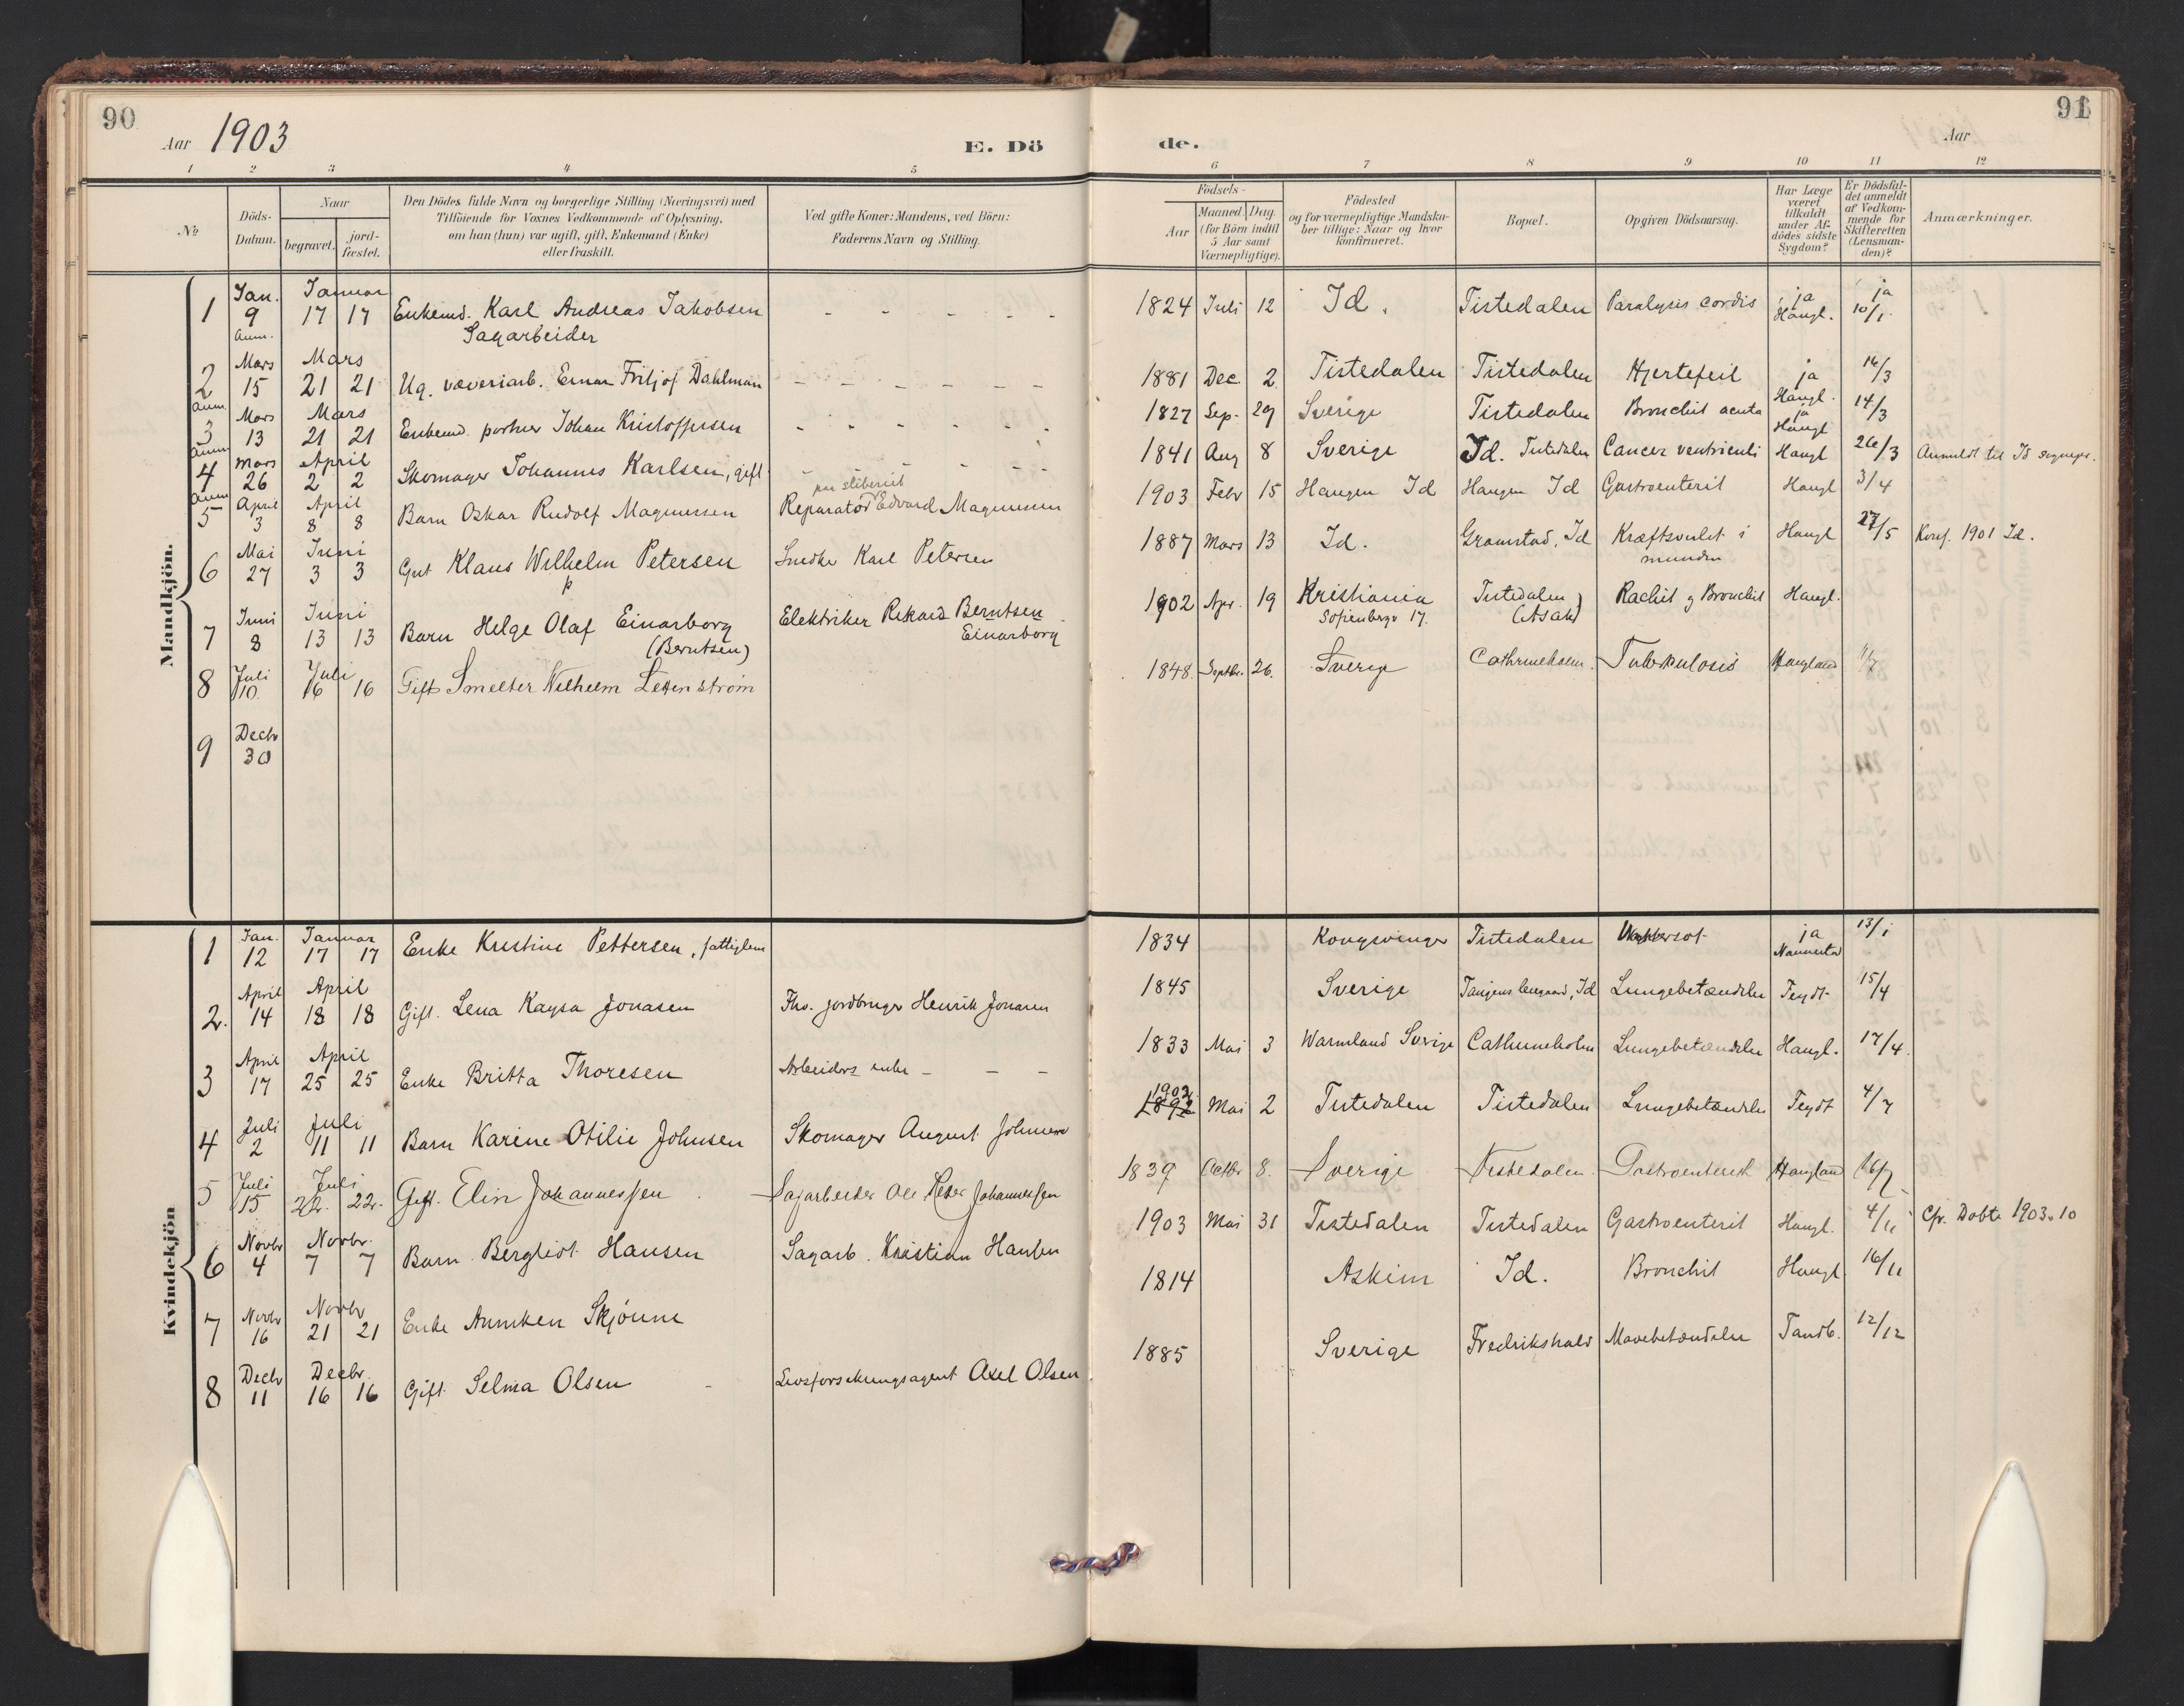 90
91
Aar 1903
E. Dö
de.
Aar
1 2 3 4 5 6 7 8 9 10 11 12
No
Döds-
Datum.
Naar
begravet. jord-
fæstet.
Den Dödes fulde Navn og borgerlige Stilling (Næringsvei) med
Tilföiende for Voxnes Vedkommende af Oplysning,
om han (hun) var ugift, gift, Enkemand (Enke)
eller fraskilt.
Ved gifte Koner: Mandens, ved Börn:
Faderens Navn og Stilling.
Födsels-
Aar
Maaned. Dag.
(for Börn indtil
5 Aar samt
Værnepligtige).
Födested
og for værnepligtige Mandska-
ber tillige: Naar og hvor
konfirmeret.
Bopæl.
Opgiven Dödsaarsag.
Har Læge
været
tilkaldt
under Af-
dödes sidste
Sygdom?
Er Dödsfal-
det anmeldt
af Vedkom-
mende for
Skifteretten
(Lensman-
den)?
Anmærkninger.
Mandkjön.
1 Jan. 9 Januar 17 17 Enkemd. Karl Andreas Jakobsen - - - - - 1824 Juli 12 Id. Tistedalen Paralysis cordis ja Haugl. ja 10/1.
Anm. Sagarbeider
2 Mars 15 Mars 21 21 Ug. væveriarb. Einar Fritjof Dahlman - - - - - - 1881 Dec. 2 Tistedalen Tistedalen Hjertefeil ja Haugl. 16/3
Anm.
3 Mars 13 Mars 21 21 Enkemd. portner Johan Kristoffersen - - - - - - 1827 Sep. 29 Sverige Tistedalen Bronchit acuta ja Haugl 14/3
Anm.
4 Mars 26 April 2 2 Skomager Johannes Karlsen, gift - - - - - - 1841 Aug 8 Sverige Id. Tistedalen Cancer ventriculi Haugl 26/3 Anmeldt til Id sognepr.
Anm
5 April 3 April 8 8 Barn Oskar Rudolf Magnussen Reparatør Edvard Magnussen 1903 Febr 15 Haugen Id Haugen Id Gastroenterit Haugl 3/4
6 Mai 27 Juni 3 3 Gut Klaus Wilhelm Petersen Smedke Karl Petersen 1887 Mars 13 Id. Id Kræftsvulst i Haugl 27/5 Konf. 1901 Id.
munden
7 Juni 8 Juni 13 13 Barn Helge Olaf Einarborg Elektriker Rikard Berntsen 1902 Apr. 19 Kristiania Tistedalen Rachit og Bronchit Haugl.
(Berntsen) Einarborg Sofienbergv 17. (Asak)
8 Juli 10. Juli 16 16 Gift Smelter Vilhelm 1848. Septbr. 26. Sverige Cathrineholm. Tuberkulosis Haugland
9 Decbr 30
Kvindekjön
1 Jan. 12 Januar 17 17 Enke Kristine Pettersen, fattiglem 1834 Kongsvinger Tistedalen ja Nannestad 13/1
2. April 14 April 18 18 Gift. Lena Kaysa Jonasen Fhv. jordbruger Henrik Jonasen 1845 Sverige Id Lungebetændelse Feydt 15/4
3 April 17 April 25 25 Enke Britta Thoresen Arbeiders enke - - - 1833 Mai 3 Warmland Sverige Cathrineholm Lungebetændelse Haugl. 17/4.
4 Juli 2 Juli 11 11 Barn Karine Otilie Johnsen Skomager August Johnsen 1902 Mai 2 Tistedalen Tistedalen Lungebetændelse Feydt 4/7
5 Juli 15 Juli 22. 22. Gift. Elin Johannessen Sagarbeider Ole Peter Johannessen 1839 Octbr 8. Sverige Tistedalen Gastroenterit Haugland 16/7
6 Novbr 4 Novbr. 7 7 Barn Bergliot Hansen Sagarb. Kristian Hansen 1903 Mai 31 Tistedalen Tistedalen Gastroenterit Haugl. 4/11 Cfr. Døbte 1903.10
7 Novbr 16 Novbr 21 21 Enke Anniken Skjønne 1814 Askim Id. Bronchit Haugl. 16/11
8 Decbr 11 Decbr. 16 16 Gift Selma Olsen - Livsforsikringsagent Axel Olsen 1885 Sverige Fredrikshald Mavebetændelse Tandb. 12/12